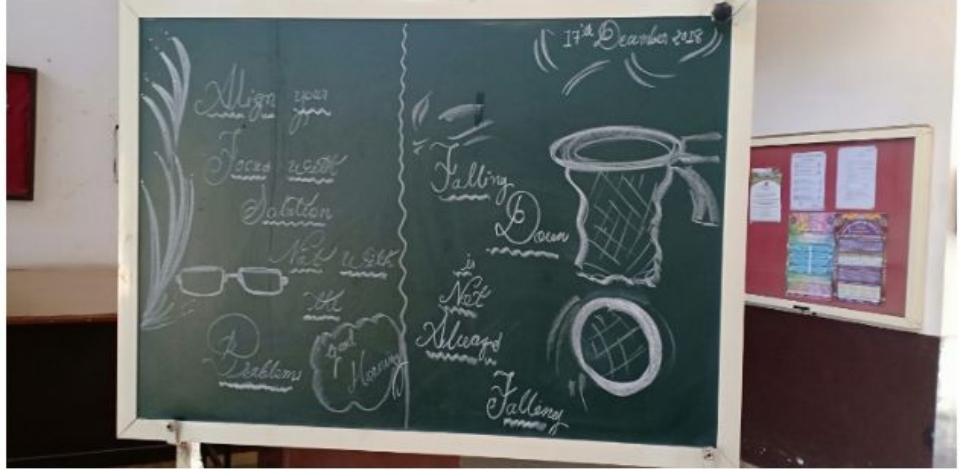 17th December 2018
Align your
Focus with
Solution
Not with
the
Problems
Good
Morning
Falling
Down
is
Not
Always
Falling